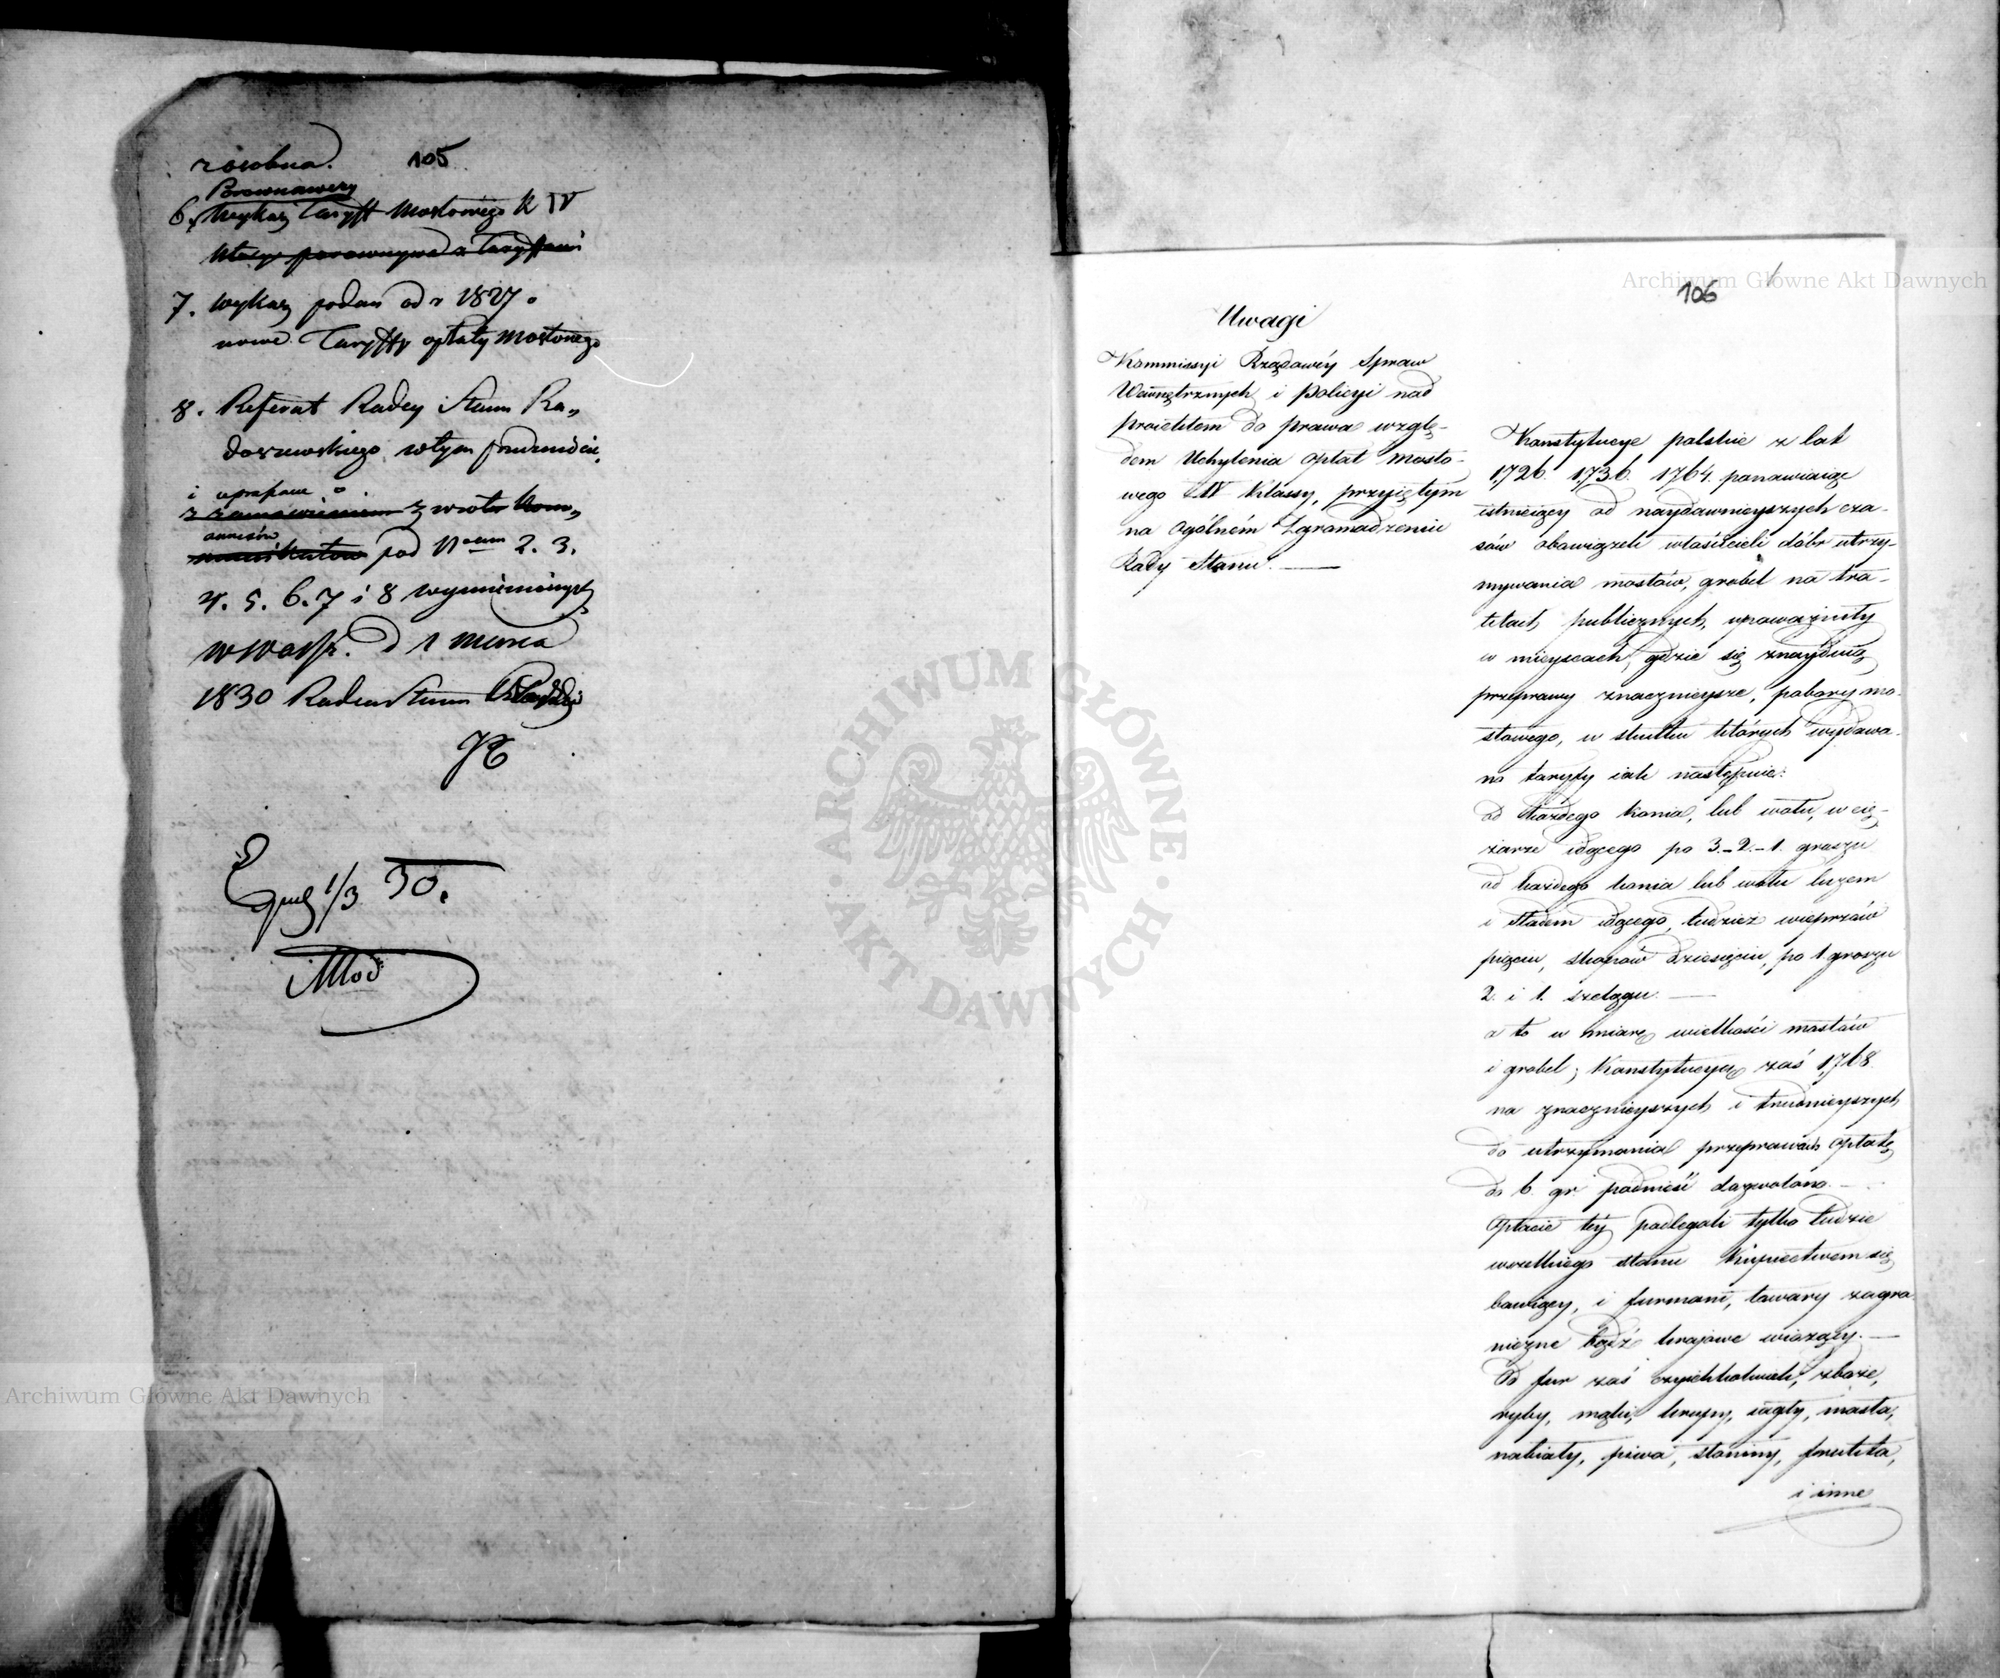 z osobna.
105
Porównawczy
6. Wykaz Taryff Mostowego K IV
7. Wykaz podań od r 1827 o
nowe Taryffy opłaty Mostowego
8. Referat Radcy Stanu Ra-
doszewskiego w tym przedmiocie,
i uprasza o
zwrot
annexów
pod Nrem 2. 3.
4. 5. 6. 7 i 8 wymienionych
w Warsz. D 1 Marca
1830 Radca Stanu
1/3 30.
106
Uwagi
Kommissyi Rządowéy Spraw
Wewnętrznych i Policyi nad
proiektem do prawa wzglę-
dem Uchylenia Opłat Mosto-
wego IV Klassy, przyiętym
na Ogólném Zgromadzeniu
Rady Stanu. —
Konstytucye polskie z lat
1726. 1736. 1764. ponawiaiąc
istnieiący od naydawnieyszych cza-
sów obowiązek właścicieli dóbr utrzy-
mywania mostów, grobel na tra-
ktach publicznych, upoważniły
w mieyscach, gdzie się znayduią
przeprawy znacznieysze, pobory mo-
stowego, w skutku których wydawa-
no taryfy iak następuie:
od każdego konia, lub wołu, w cię-
żarze idącego po 3.-2.-1. groszu
od każdego konia lub wołu luzem
i stadem idącego, tudzież wieprzów
pięciu, skopów dziesięciu, po 1 groszu
2. i 1. szelągu. —
a to w miarę wielkości mostów
i grobel; Konstytucya zaś 1768.
na znacznieyszych i trudnieyszych
do utrzymania przeprawach opłatę
do 6. gr. podnieść dozwoloną. —
Opłacie téy podlegali tylko ludzie
wszelkiego stanu Kupiectwem się
bawiący, i furmani, towary zagra-
niczne bądź krajowe wiozący. —
Od fur zaś szyichkolwiek, zboże,
ryby, mąki, krupy, iagły, masła,
nabiały, piwa, słoniny, frukta,
i inne
Archiwum Główne Akt Dawnych
Archiwum Główne Akt Dawnych
ARCHIWUM GŁÓWNE · AKT DAWNYCH ·